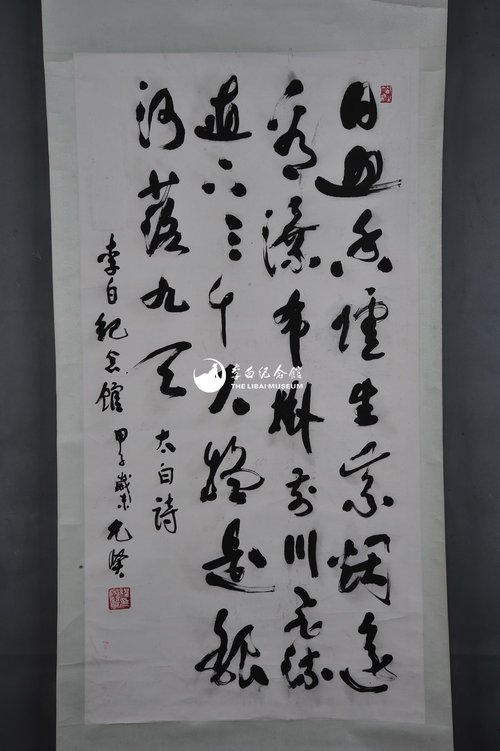 日照香爐生紫烟遥
看瀑布掛前川飛流
直下三千尺疑是銀
河落九天
太白詩
李白纪念館 甲子歲末
李白纪念館
THE LIBAI MUSEUM